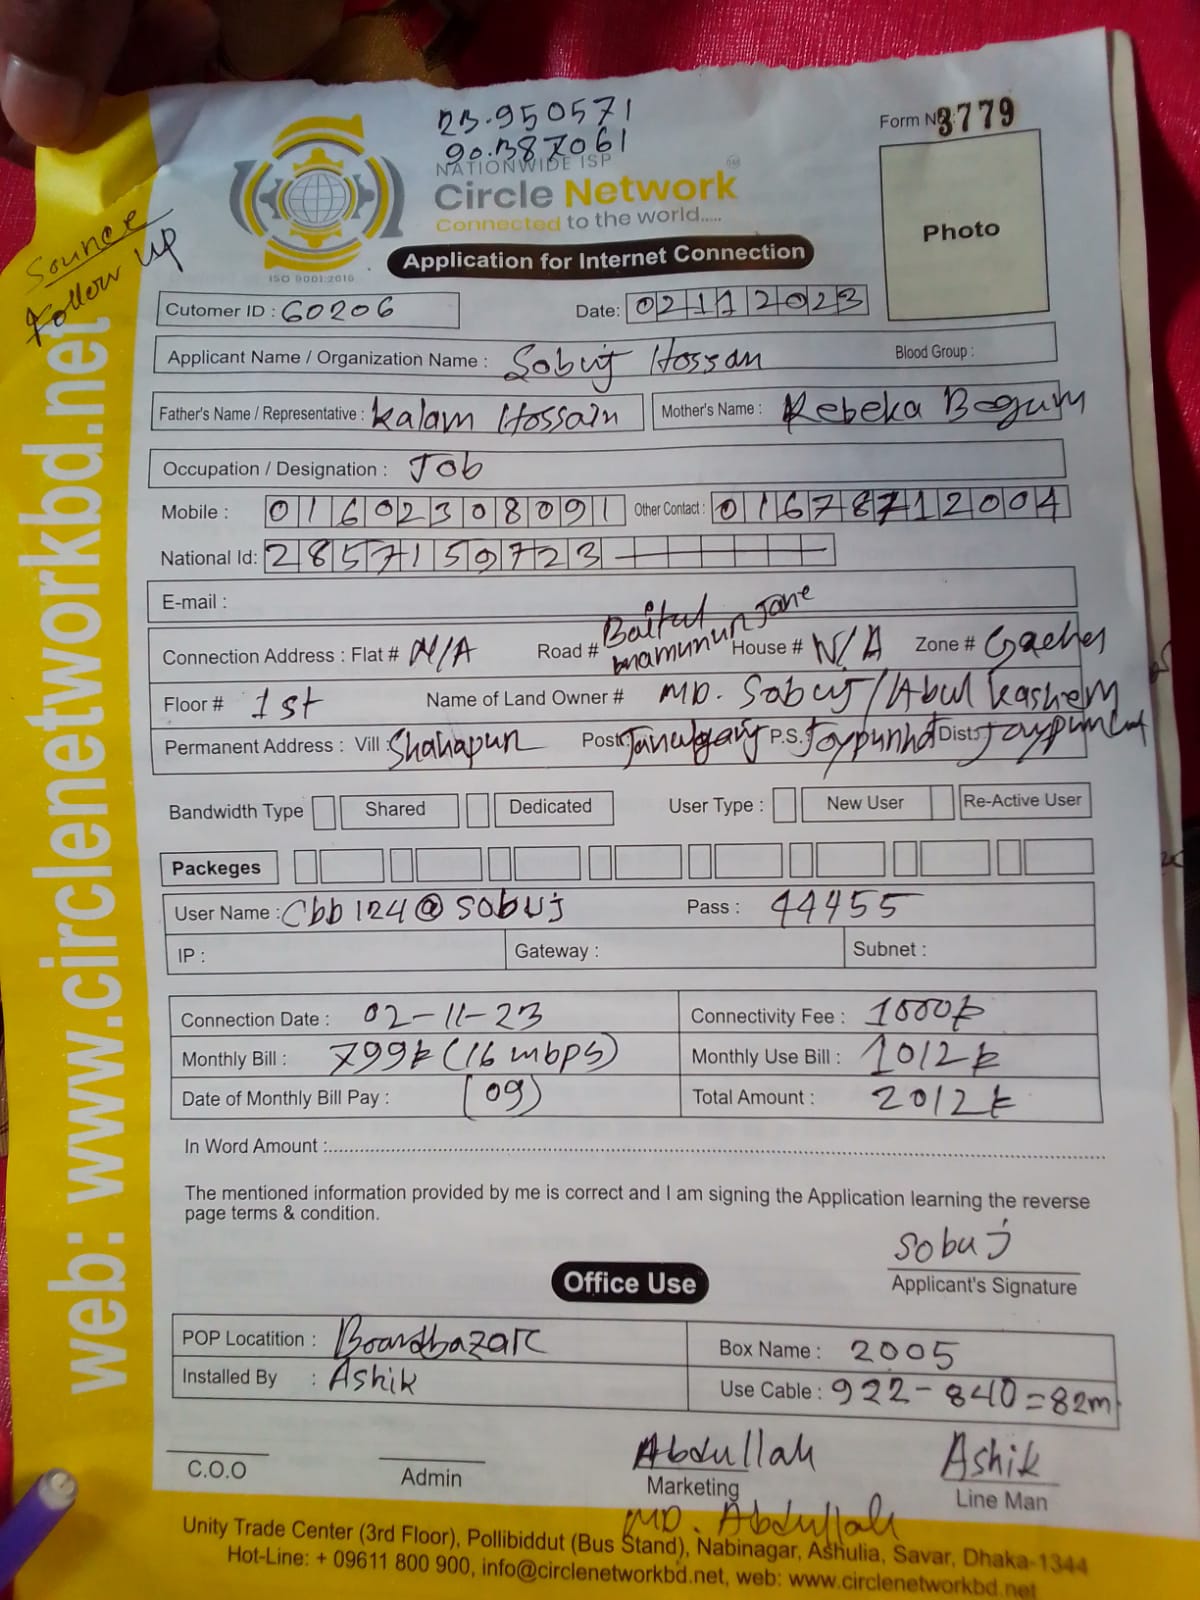 23.950571
90.387061
Form No. 3779
NATIONWIDE ISP
Circle Network
Connected to the world.....
ISO 9001:2016
Source
Follow up
Application for Internet Connection
Photo
Cutomer ID : 60206 Date: 02112023
Applicant Name / Organization Name : Sobuj Hossan Blood Group :
Father's Name / Representative : Kalam Hossain Mother's Name : Rebeka Begum
Occupation / Designation : Job
Mobile : 01602308091 Other Contact : 01678712004
National Id: 2857159723
E-mail :
Connection Address : Flat # N/A Road # Baitul mamunun Jane House # N/A Zone # Gacher
Floor # 1st Name of Land Owner # MD. Sobuj / Abul Kashem
Permanent Address : Vill : Shahapur Post: P.S. Dist:
Bandwidth Type Shared Dedicated User Type : New User Re-Active User
Packeges
User Name : Cbb124@sobuj Pass : 44455
IP : Gateway : Subnet :
Connection Date : 02-11-23 Connectivity Fee : 1000৳
Monthly Bill : 799৳ (16 mbps) Monthly Use Bill : 1012৳
Date of Monthly Bill Pay : (09) Total Amount : 2012৳
In Word Amount :
The mentioned information provided by me is correct and I am signing the Application learning the reverse
page terms & condition.
Sobuj
Applicant's Signature
Office Use
POP Locatition : Boardbazar Box Name : 2005
Installed By : Ashik Use Cable : 922-840=82m
Abdullah Ashik
C.O.O Admin Marketing Line Man
MD. Abdullah
Unity Trade Center (3rd Floor), Pollibiddut (Bus Stand), Nabinagar, Ashulia, Savar, Dhaka-1344
Hot-Line: + 09611 800 900, info@circlenetworkbd.net, web: www.circlenetworkbd.net
web: www.circlenetworkbd.net